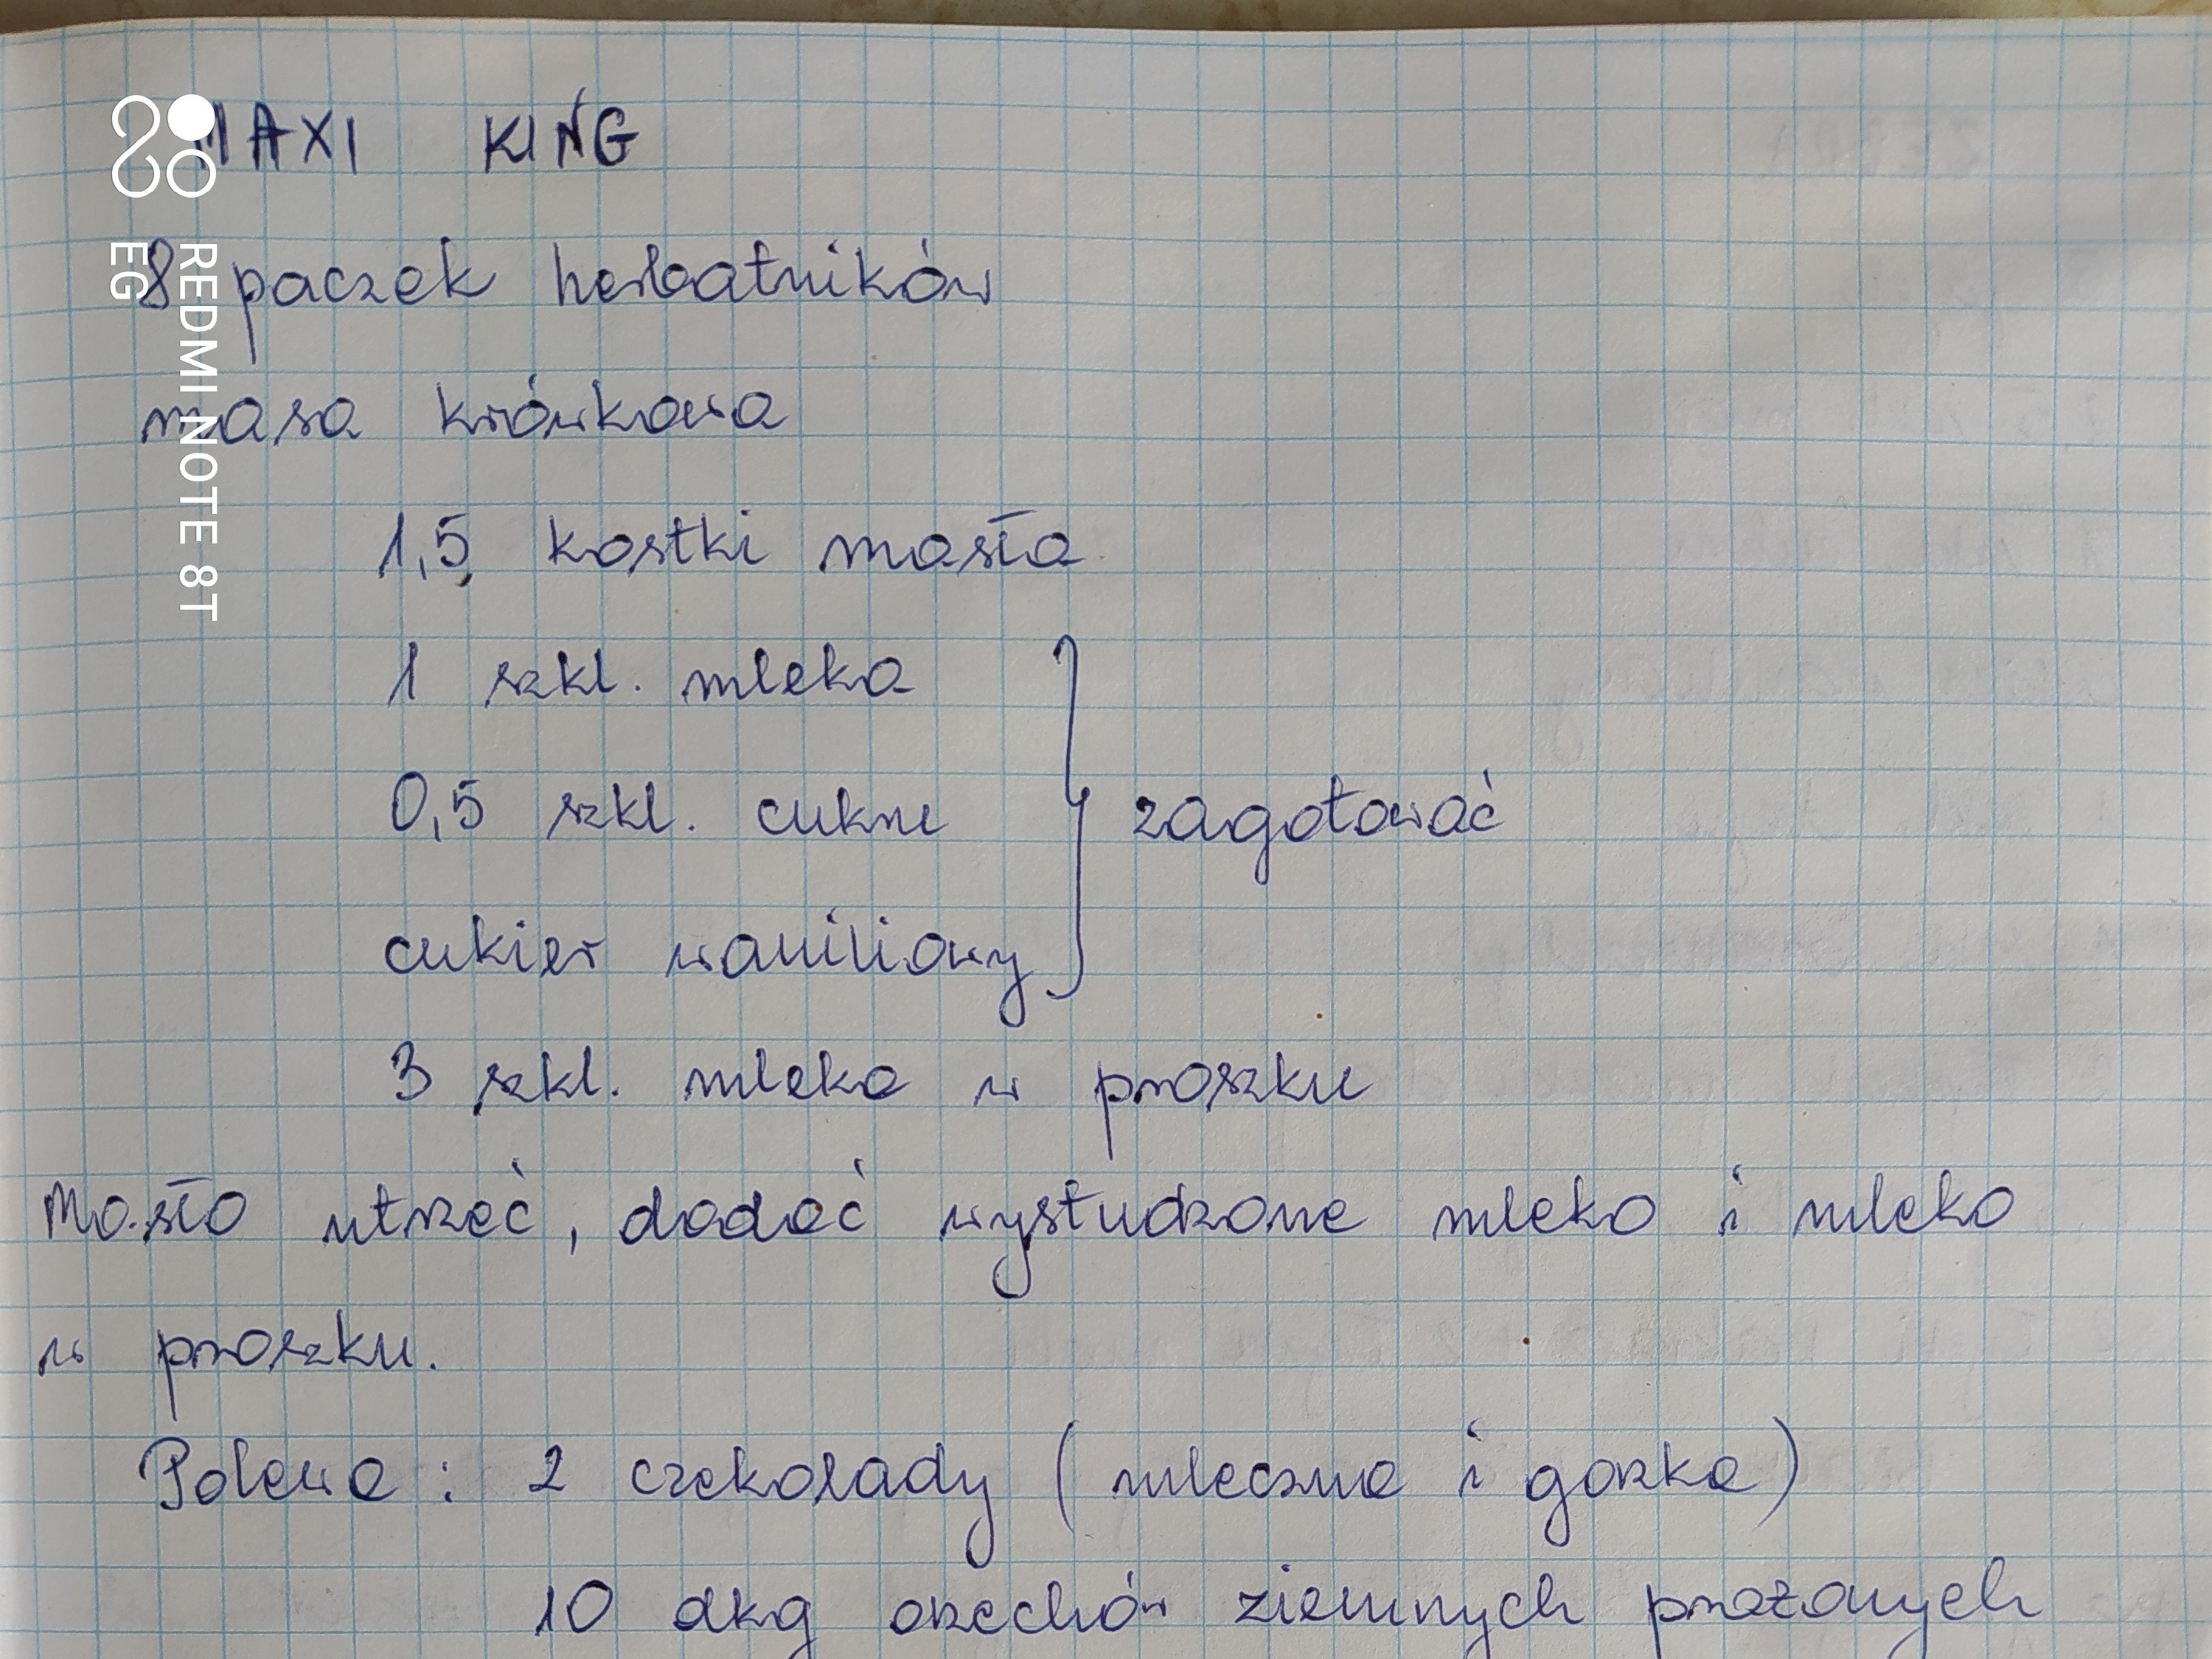 MAXI KING
8 paczek herbatników
masa krówkowa
1,5 kostki masła
1 szkl. mleka
0,5 szkl. cukru
cukier waniliowy
} zagotować
3 szkl. mleka w proszku
Masło utrzeć, dodać wystudzone mleko i mleko
w proszku.
Polewa : 2 czekolady (mleczna i gorzka)
10 dkg orzechów ziemnych prażonych
REDMI NOTE 8T
EG